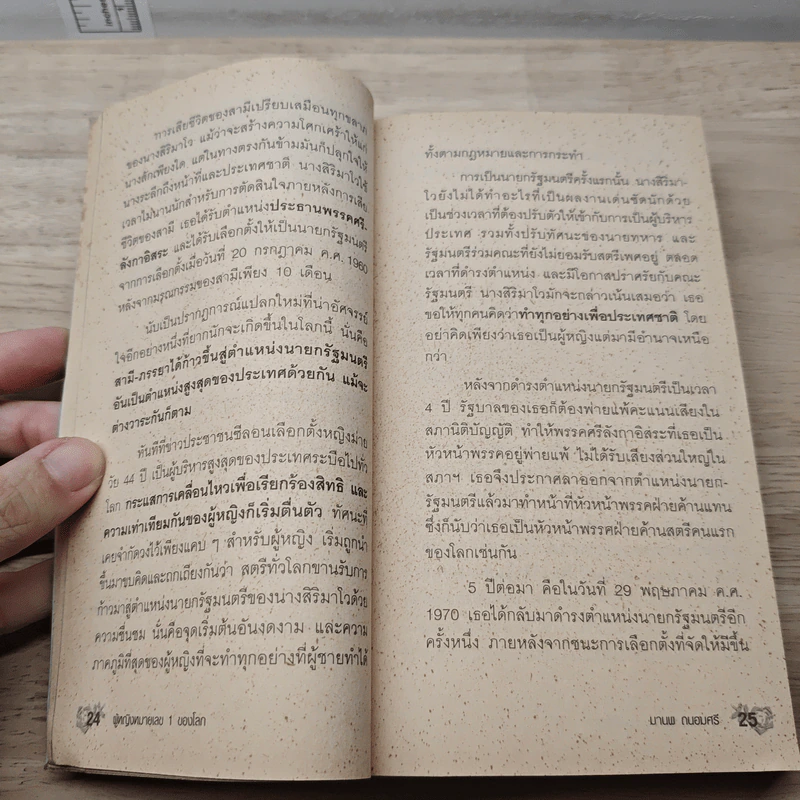 การเสียชีวิตของสามีเปรียบเสมือนทุกขลาภ
ของนางสิริมาโว แม้ว่าจะสร้างความโศกเศร้าให้แก่
นางสักเพียงใด แต่ในทางตรงกันข้ามมันก็ปลุกใจให้
นางระลึกถึงหน้าที่และประเทศชาติ นางสิริมาโวใช้
เวลาไม่นานนักสำหรับการตัดสินใจภายหลังการเสีย
ชีวิตของสามี เธอได้รับตำแหน่งประธานพรรคศรี-
ลังกาอิสระ และได้รับเลือกตั้งให้เป็นนายกรัฐมนตรี
จากการเลือกตั้งเมื่อวันที่ 20 กรกฎาคม ค.ศ. 1960
หลังจากมรณกรรมของสามีเพียง 10 เดือน
นับเป็นปรากฏการณ์แปลกใหม่ที่น่าอัศจรรย์
ใจอีกอย่างหนึ่งที่ยากนักจะเกิดขึ้นในโลกนี้ นั่นคือ
สามี-ภรรยาได้ก้าวขึ้นสู่ตำแหน่งนายกรัฐมนตรี
อันเป็นตำแหน่งสูงสุดของประเทศด้วยกัน แม้จะ
ต่างวาระกันก็ตาม
ทันทีที่ข่าวประชาชนซีลอนเลือกตั้งหญิงม่าย
วัย 44 ปี เป็นผู้บริหารสูงสุดของประเทศระบือไปทั่ว
โลก กระแสการเคลื่อนไหวเพื่อเรียกร้องสิทธิ และ
ความเท่าเทียมกันของผู้หญิงก็เริ่มตื่นตัว ทัศนะที่
เคยจำกัดวงไว้เพียงแคบ ๆ สำหรับผู้หญิง เริ่มถูกนำ
ขึ้นมาขบคิดและถกเถียงกันว่า สตรีทั่วโลกขานรับการ
ก้าวมาสู่ตำแหน่งนายกรัฐมนตรีของนางสิริมาโวด้วย
ความชื่นชม นั่นคือจุดเริ่มต้นอันงดงาม และความ
ภาคภูมิที่สุดของผู้หญิงที่จะทำทุกอย่างที่ผู้ชายทำได้
24 ผู้หญิงหมายเลข 1 ของโลก
ทั้งตามกฎหมายและการกระทำ
การเป็นนายกรัฐมนตรีครั้งแรกนั้น นางสิริมา-
โวยังไม่ได้ทำอะไรที่เป็นผลงานเด่นชัดนักด้วย
เป็นช่วงเวลาที่ต้องปรับตัวให้เข้ากับการเป็นผู้บริหาร
ประเทศ รวมทั้งปรับทัศนะของนายทหาร และ
รัฐมนตรีร่วมคณะที่ยังไม่ยอมรับสตรีเพศอยู่ ตลอด
เวลาที่ดำรงตำแหน่ง และมีโอกาสปราศรัยกับคณะ
รัฐมนตรี นางสิริมาโวมักจะกล่าวเน้นเสมอว่า เธอ
ขอให้ทุกคนคิดว่าทำทุกอย่างเพื่อประเทศชาติ โดย
อย่าคิดเพียงว่าเธอเป็นผู้หญิงแต่มามีอำนาจเหนือ
กว่า
หลังจากดำรงตำแหน่งนายกรัฐมนตรีเป็นเวลา
4 ปี รัฐบาลของเธอก็ต้องพ่ายแพ้คะแนนเสียงใน
สภานิติบัญญัติ ทำให้พรรคศรีลังกาอิสระที่เธอเป็น
หัวหน้าพรรคอยู่พ่ายแพ้ ไม่ได้รับเสียงส่วนใหญ่ใน
สภาฯ เธอจึงประกาศลาออกจากตำแหน่งนายก-
รัฐมนตรีแล้วมาทำหน้าที่หัวหน้าพรรคฝ่ายค้านแทน
ซึ่งก็นับว่าเธอเป็นหัวหน้าพรรคฝ่ายค้านสตรีคนแรก
ของโลกเช่นกัน
5 ปีต่อมา คือในวันที่ 29 พฤษภาคม ค.ศ.
1970 เธอได้กลับมาดำรงตำแหน่งนายกรัฐมนตรีอีก
ครั้งหนึ่ง ภายหลังจากชนะการเลือกตั้งที่จัดให้มีขึ้น
มานพ ถนอมศรี 25